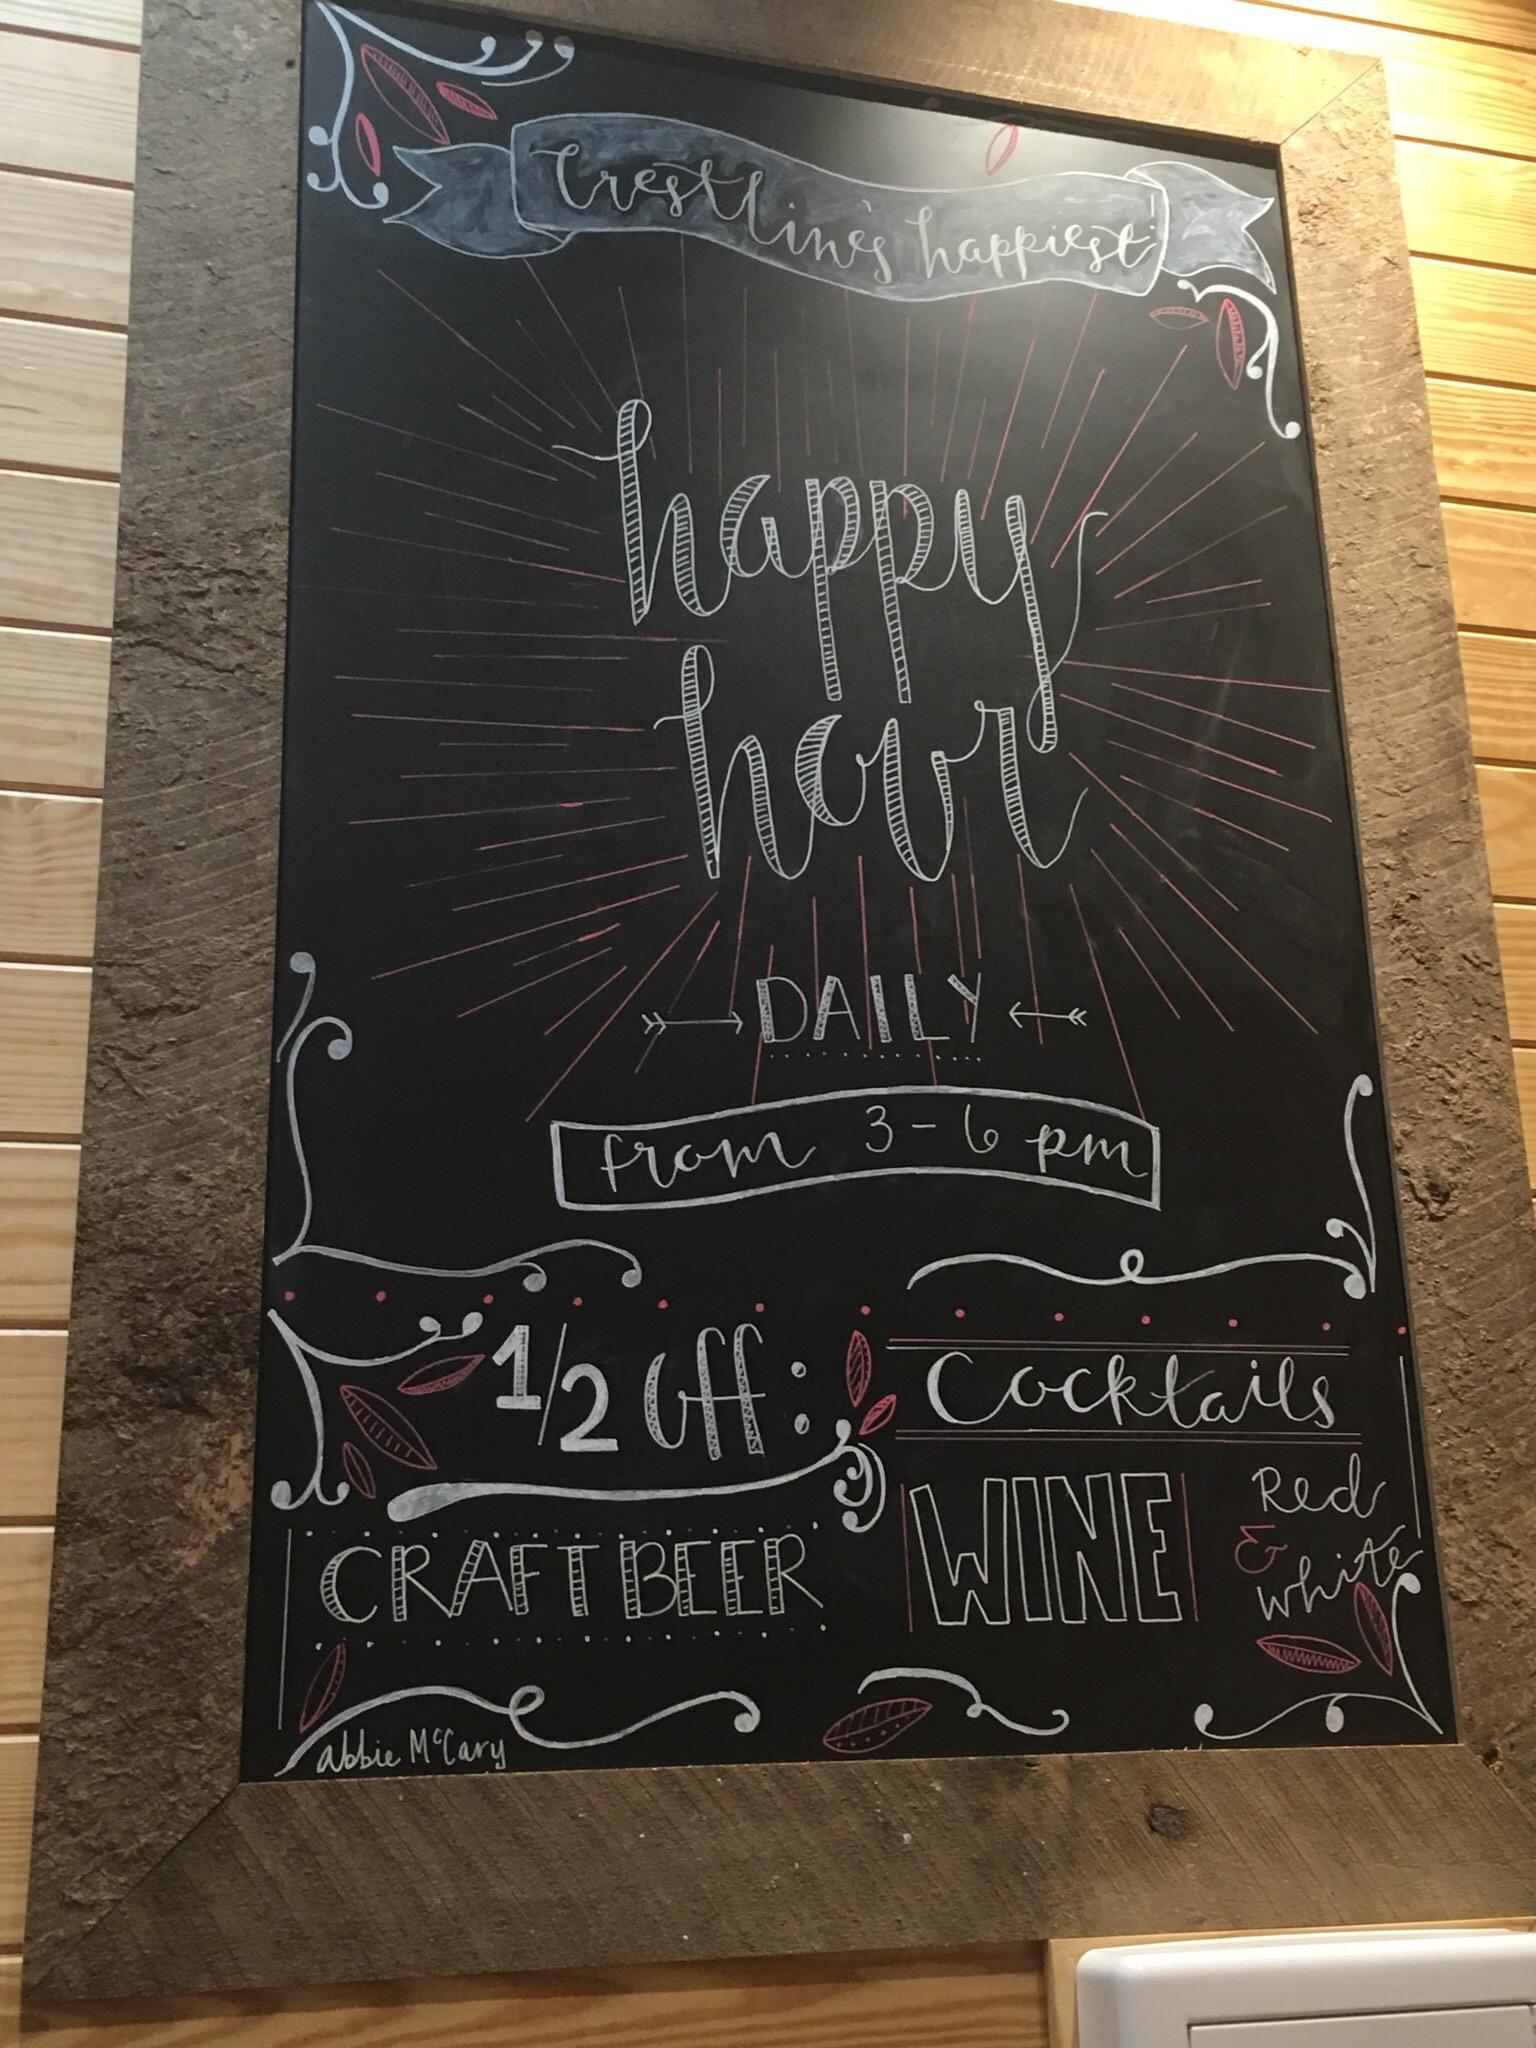 Crestline's happiest
happy
hour
DAILY
from 3-6 pm
1/2 off:
CRAFT BEER
Cocktails
WINE Red & white
abbie McCary